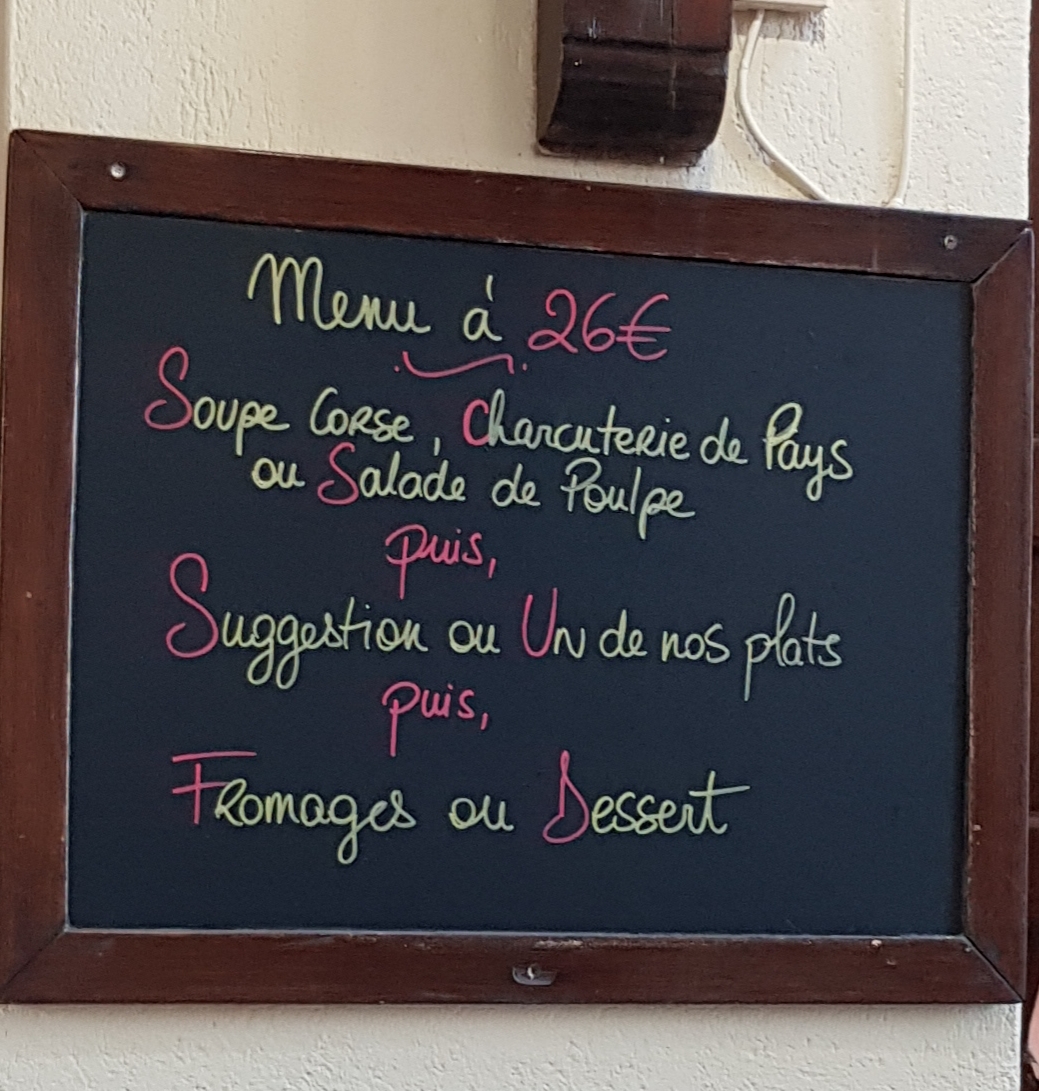 Menu à 26€
Soupe Corse, Charcuterie de Pays
ou Salade de Poulpe
puis,
Suggestion ou Un de nos plats
puis,
Fromages ou Dessert